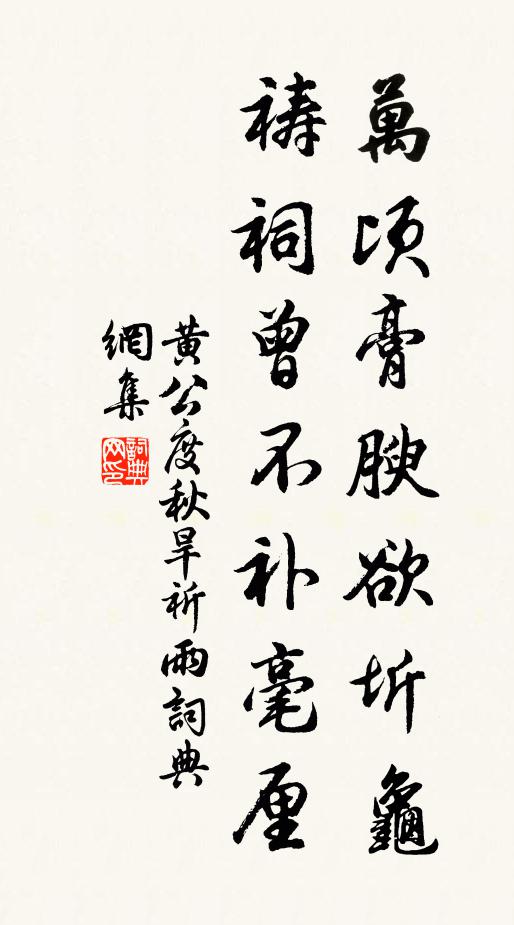 萬顷膏腴欲坼龜
祷祠曾不补毫厘
黄公度秋旱祈雨詞典
網集
詞典網印